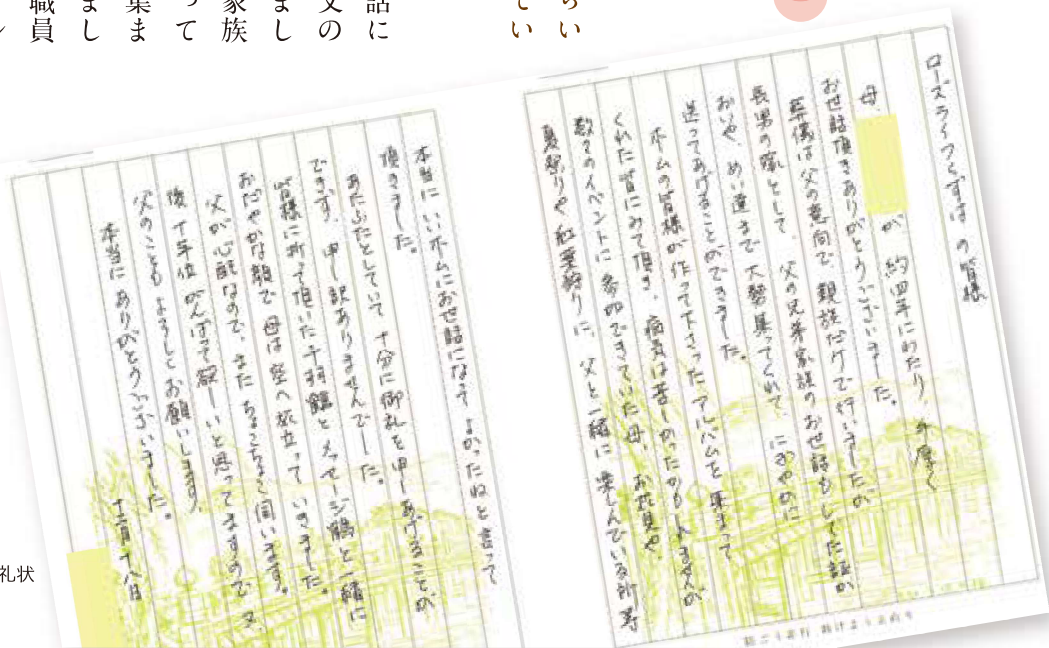 らい
てい
話に
父の
まし
家族
って
集ま
まし
職員
ローズライフくずは の皆様
母 が 約四年にわたり、手厚く
お世話頂きありがとうございました。
葬儀は父の意向で、親族だけで行いましたが
長男の嫁として、父の兄弟家族のお世話もしてた証か
おいや、めい達まで大勢集ってくれて、にぎやかに
送ってあげることができました。
ホームの皆様が作って下さったアルバムを集まって
くれた皆にみて頂き、病気は苦しかったかもしれませんが
数々のイベントに参加できていた母、お花見や、
夏祭りや紅葉狩りに、父と一緒に楽しんでいる所等
本当にいいホームにお世話になって よかったねと言って
頂きました。
あたふたとしていて 十分に御礼を申しあげることが
できず、申し訳ありませんでした。
皆様に折って頂いた千羽鶴とメッセージ鶴と一緒に
おだやかな顔で 母は空へ旅立って いきました。
父が心配なので、また ちょこちょこ伺います。
後十年位 がんばって欲しいと思ってますので 又、
父のことも よろしくお願いします。
本当に ありがとうございました。
十二月十八日
礼状